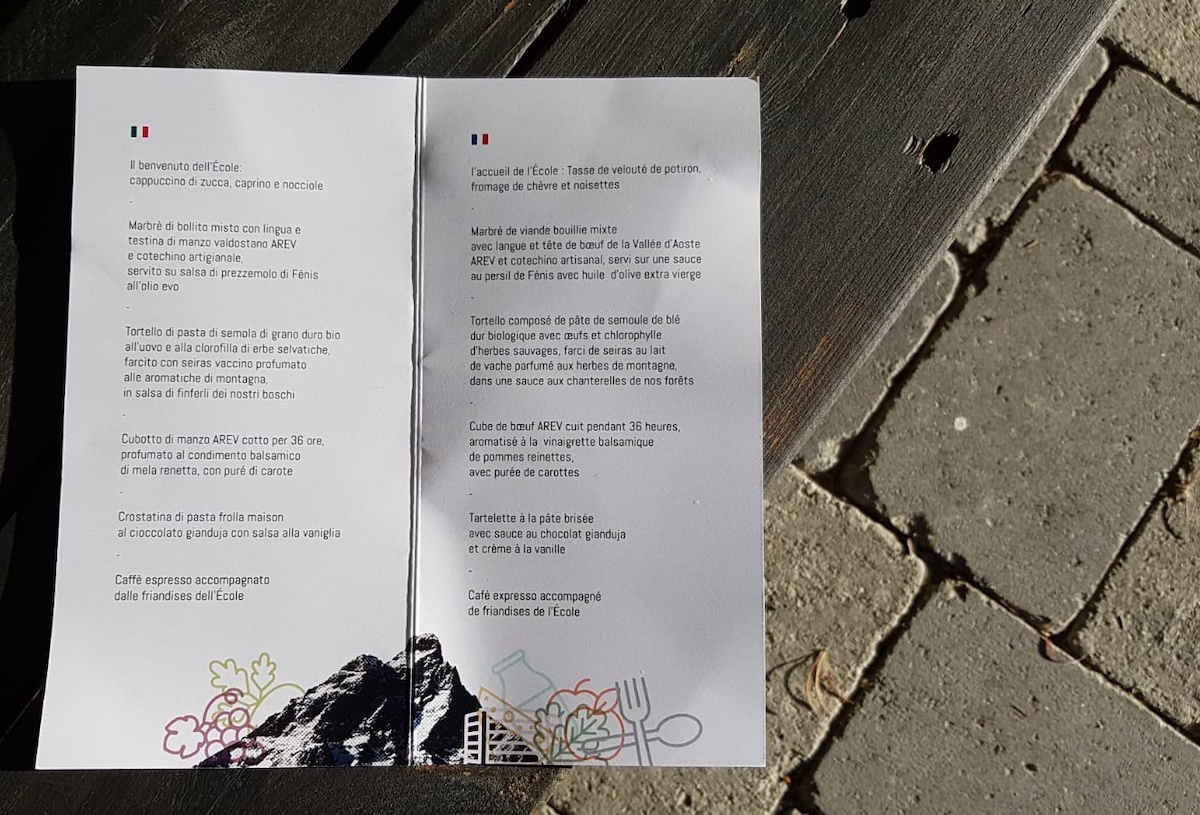 Il benvenuto dell'École:
cappuccino di zucca, caprino e nocciole
-
Marbrè di bollito misto con lingua e
testina di manzo valdostano AREV
e cotechino artigianale,
servito su salsa di prezzemolo di Fénis
all'olio evo
-
Tortello di pasta di semola di grano duro bio
all'uovo e alla clorofilla di erbe selvatiche,
farcito con seiras vaccino profumato
alle aromatiche di montagna,
in salsa di finferli dei nostri boschi
-
Cubotto di manzo AREV cotto per 36 ore,
profumato al condimento balsamico
di mela renetta, con puré di carote
-
Crostatina di pasta frolla maison
al cioccolato gianduja con salsa alla vaniglia
-
Caffé espresso accompagnato
dalle friandises dell'École
l'accueil de l'École : Tasse de velouté de potiron,
fromage de chèvre et noisettes
-
Marbré de viande bouillie mixte
avec langue et tête de bœuf de la Vallée d'Aoste
AREV et cotechino artisanal, servi sur une sauce
au persil de Fénis avec huile d'olive extra vierge
-
Tortello composé de pâte de semoule de blé
dur biologique avec œufs et chlorophylle
d'herbes sauvages, farci de seiras au lait
de vache parfumé aux herbes de montagne,
dans une sauce aux chanterelles de nos forêts
-
Cube de bœuf AREV cuit pendant 36 heures,
aromatisé à la vinaigrette balsamique
de pommes reinettes,
avec purée de carottes
-
Tartelette à la pâte brisée
avec sauce au chocolat gianduja
et crème à la vanille
-
Café expresso accompagné
de friandises de l'École